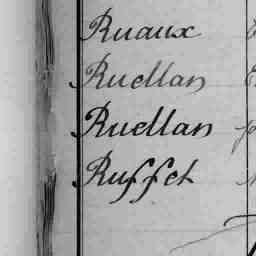 Ruaux
Ruellan
Ruellan
Ruffet